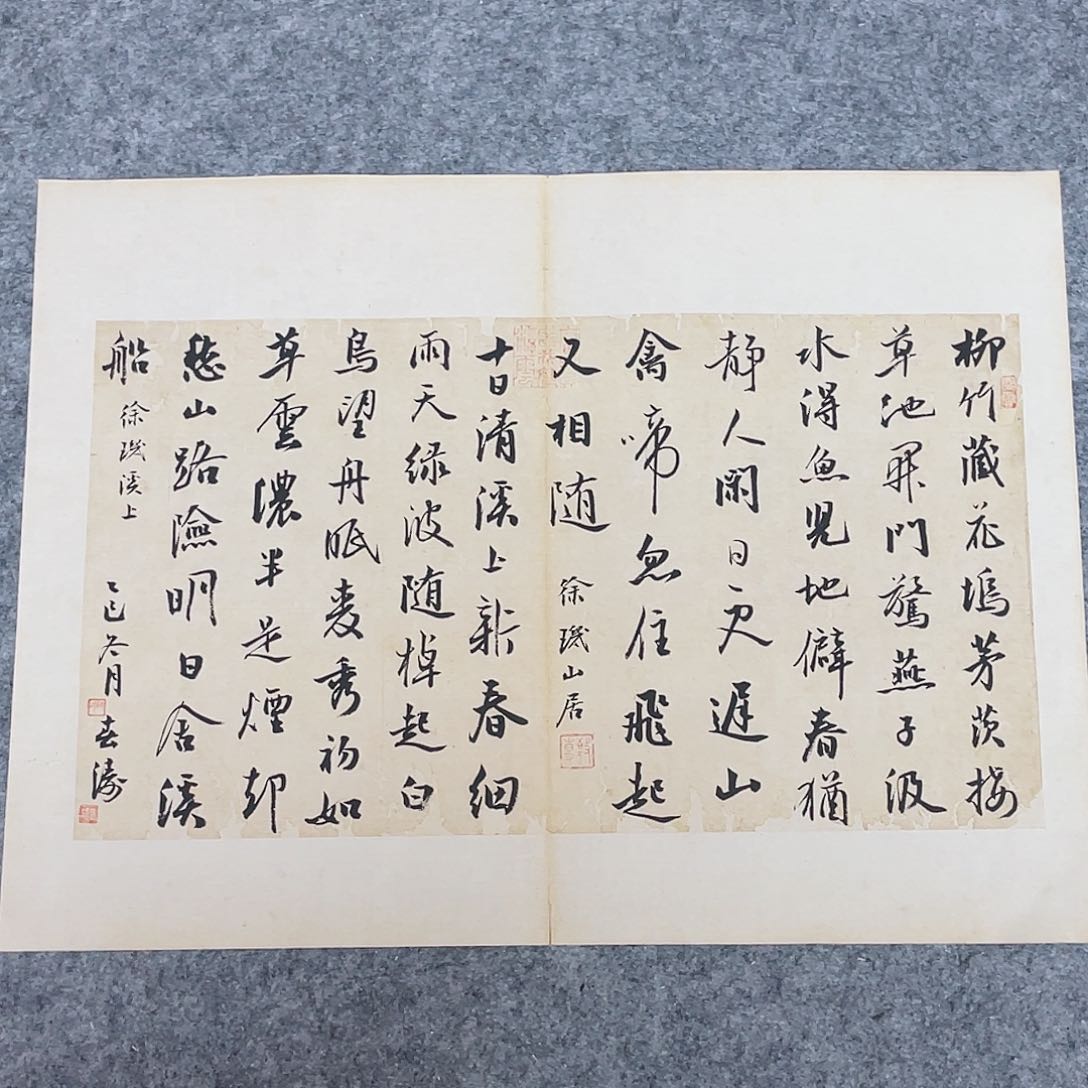 柳竹藏花塢茅茨接
草池開門驚燕子汲
水得魚兒地僻春猶
静人閑日更遲山
禽啼忽住飛起
又相随 徐璣山居
十日清溪上新春細
雨天緑波随棹起白
鳥望舟眠麦秀初如
草雲濃半是煙却
愁山路險明日舍溪
船 徐璣溪上 乙巳冬月